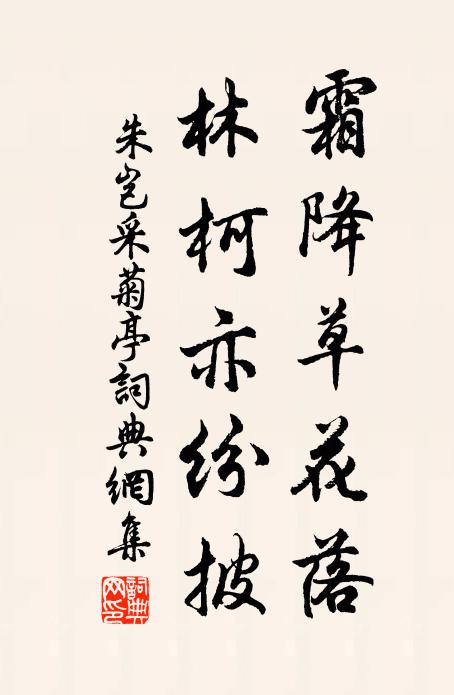 霜降草花落
林柯亦纷披
朱岂采菊亭詞典網集
詞典网印